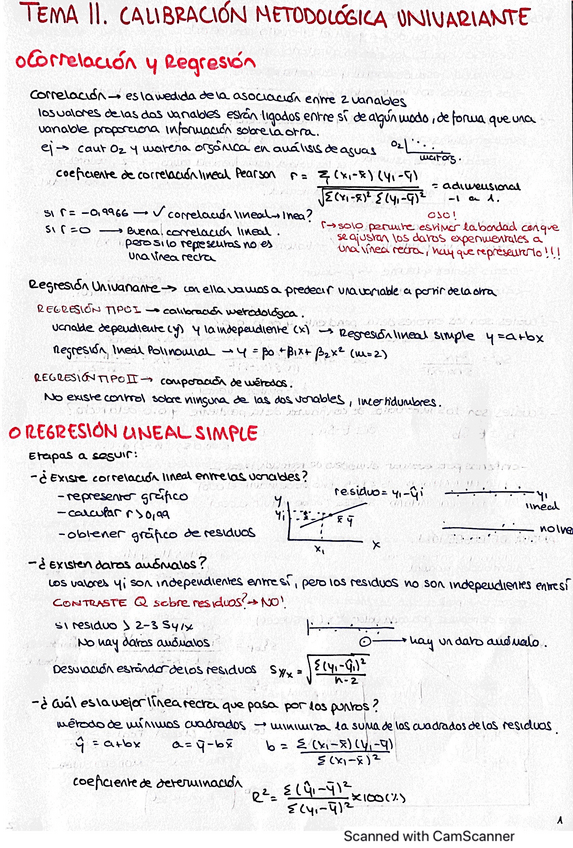 TEMA 11. CALIBRACIÓN METODOLÓGICA UNIVARIANTE
o Correlación y Regresión
Correlación → es la medida de la asociación entre 2 variables
los valores de las dos variables están ligados entre sí de algún modo, de forma que una
variable proporciona información sobre la otra.
ej → cant O2 y materia orgánica en análisis de aguas
O2
mat org.
coeficiente de correlación lineal Pearson r = Σ(xi-x̄)(yi-ȳ) / √Σ(xi-x̄)² Σ(yi-ȳ)² = adimensional
-1 a 1.
si r = -0,9966 → ✓ correlación lineal → línea?
si r = 0 → buena correlación lineal.
pero si lo representas no es
una línea recta
OJO!
r → solo permite estimar la bondad con que
se ajustan los datos experimentales a
una línea recta, hay que representarlo!!!
Regresión Univariante → con ella vamos a predecir una variable a partir de la otra
REGRESIÓN TIPO I → calibración metodológica.
variable dependiente (y) y la independiente (x) → Regresión lineal simple y=a+bx
Regresión lineal Polinomial → y = β0 + β1x + β2x² (m=2)
REGRESIÓN TIPO II → comparación de métodos.
No existe control sobre ninguna de las dos variables, incertidumbres.
o REGRESIÓN LINEAL SIMPLE
Etapas a seguir:
- ¿Existe correlación lineal entre las variables?
- representar gráfico
- calcular r > 0,99
- obtener gráfico de residuos
y
yi
x̄ ȳ
xi
x
residuo = yi-ŷi
yi
lineal
no lineal
- ¿Existen datos anómalos?
Los valores yi son independientes entre sí, pero los residuos no son independientes entre sí
CONTRASTE Q sobre residuos? → NO!
si residuo > 2-3 Sy/x
No hay datos anómalos
→ hay un dato anómalo.
Desviación estándar de los residuos Sy/x = √Σ(yi-ŷi)² / n-2
- ¿Cuál es la mejor línea recta que pasa por los puntos?
método de mínimos cuadrados → minimiza la suma de los cuadrados de los residuos.
ŷ = a+bx a = ȳ-bx̄ b = Σ(xi-x̄)(yi-ȳ) / Σ(xi-x̄)²
coeficiente de determinación R² = Σ(ŷi-ȳ)² / Σ(yi-ȳ)² × 100 (%)
1
Scanned with CamScanner